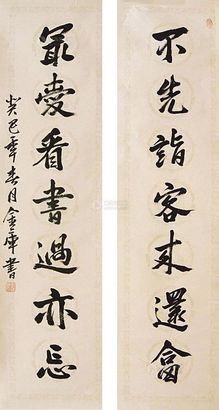 不先詣客来還畣
冣愛看書過亦忘
癸巳年春月金庫書